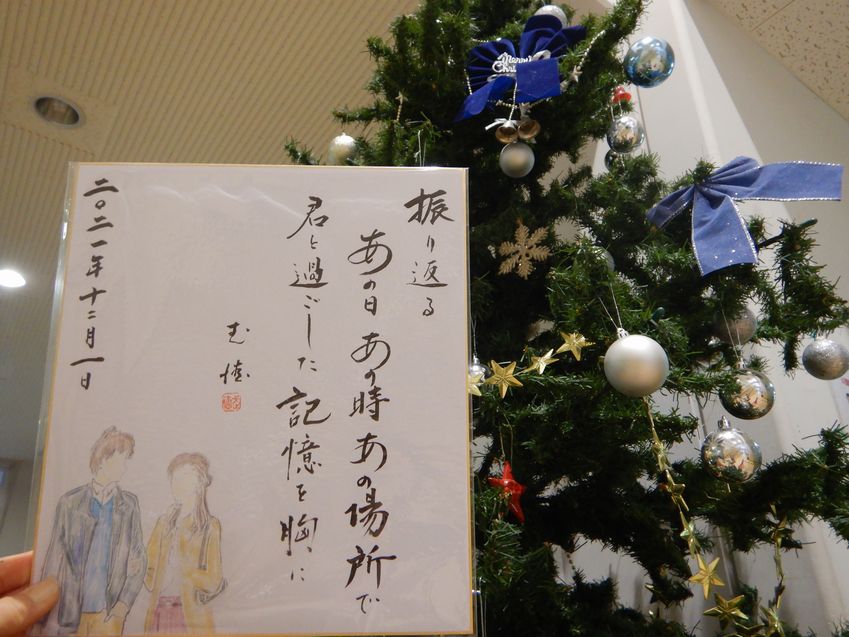 振り返る
あの日 あの時 あの場所で
君と過ごした 記憶を胸に
二〇二一年十二月一日
Merry